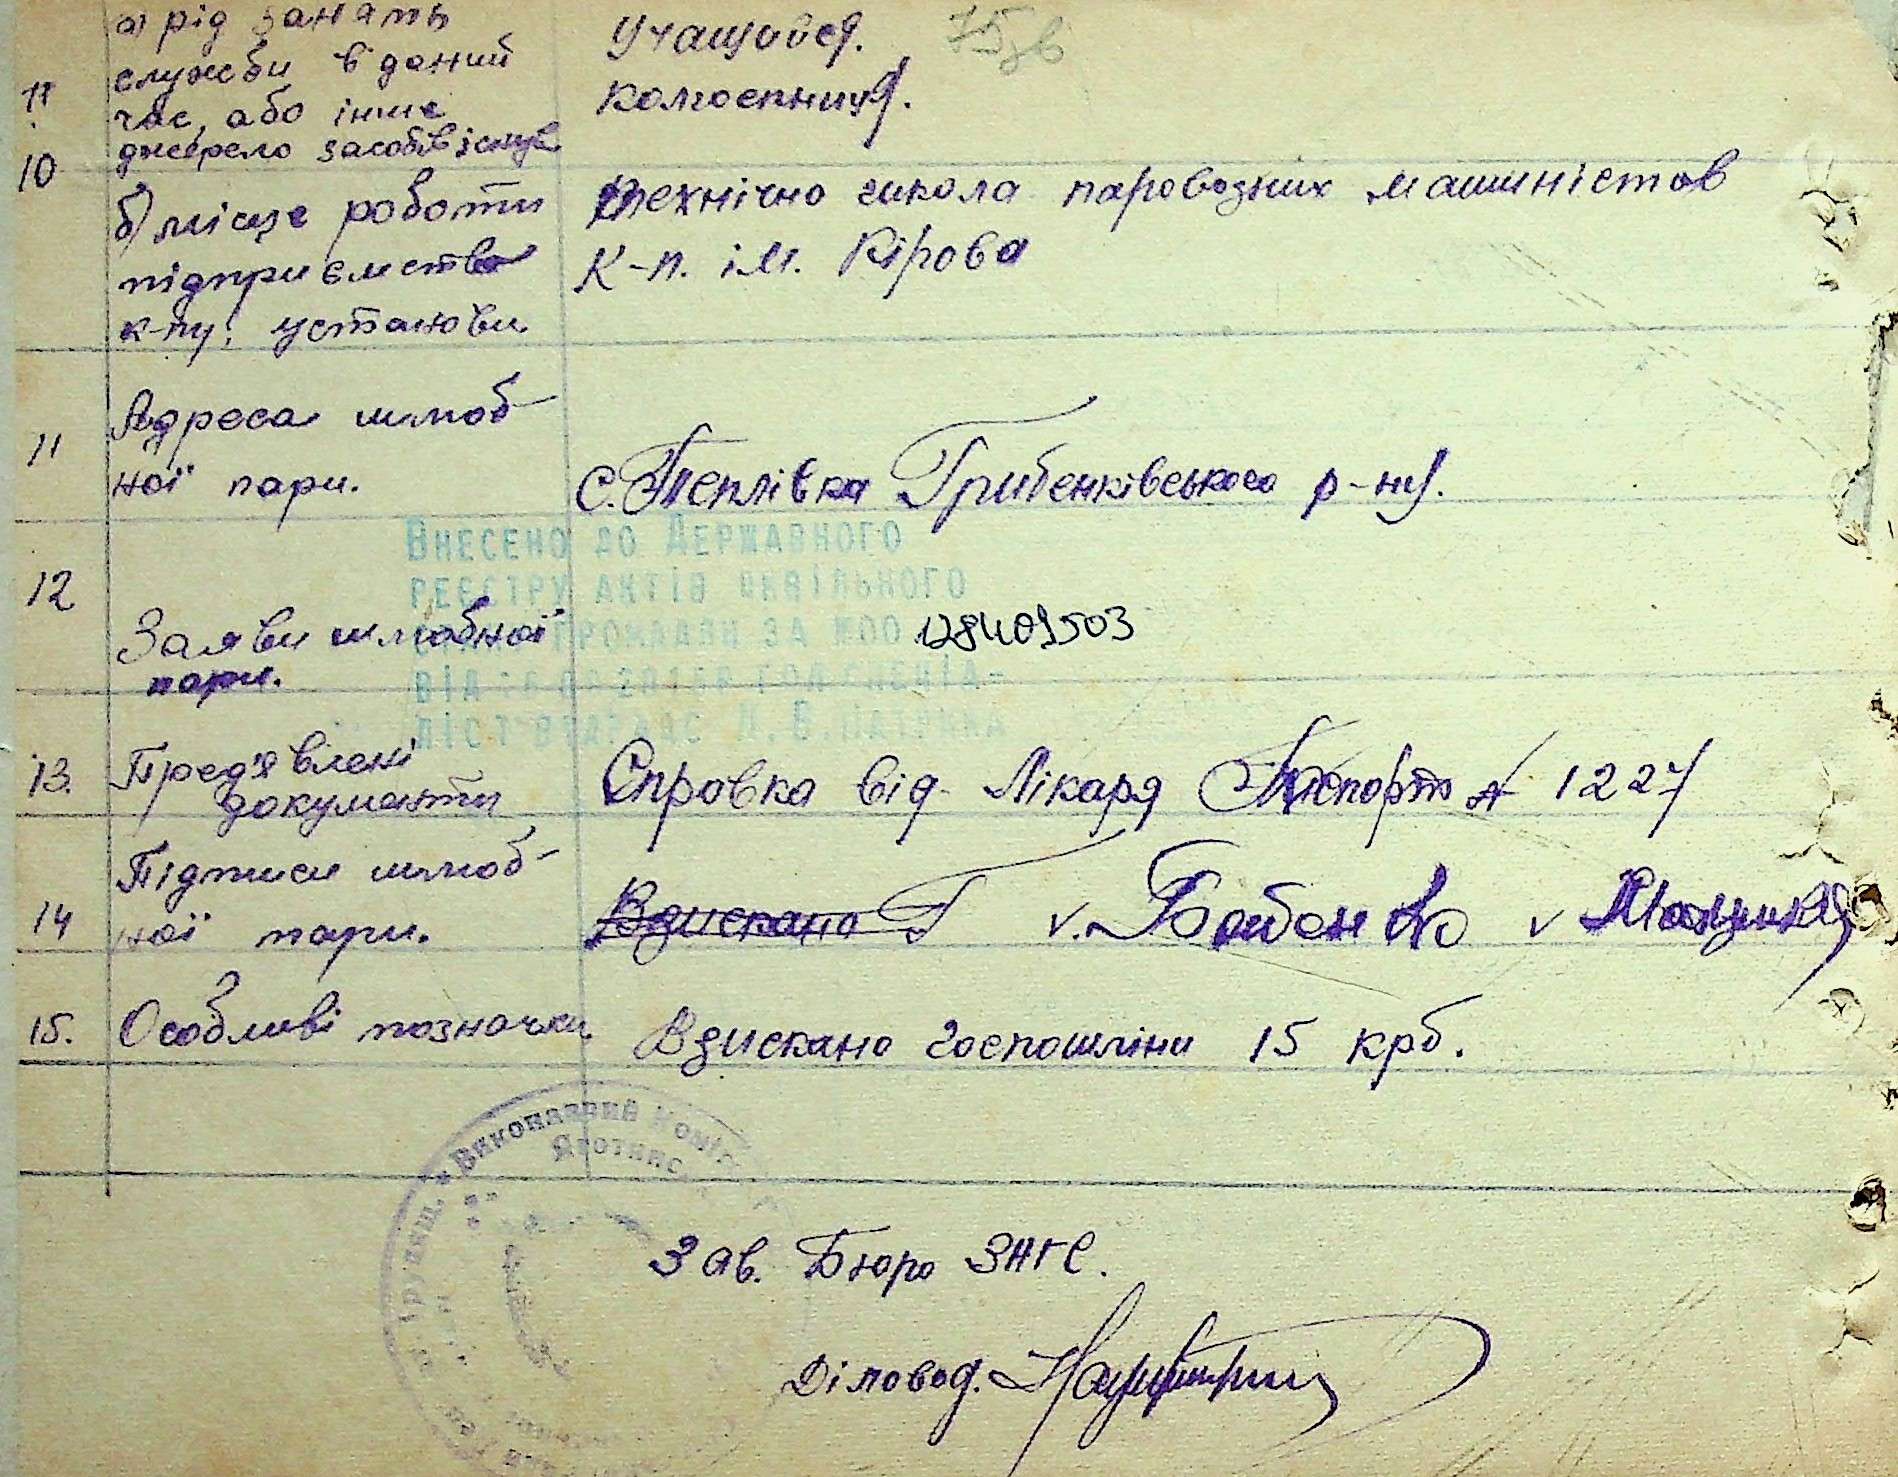 а) рід занять
служби в даний
час, або інше
джерело засобів існув.
Учащовся.
колгоспниця.
11
10
б) місце роботи
підприємства
к-пу, установи
Технічно школа паровозних машиністов
К-п. ім. Кірова
11
Адреса шлюб-
ної пари.
с. Теплівка Грибенківського р-ну.
Внесено до Державного
реєстру актів цивільного
стану громадян за №00 128409503
12
Заяви шлюбної
пари.
13. Пред'явлені
документи
Справка від Лікаря Паспорт № 1227
14 Підписи шлюб-
ної пари.
Вдискано Г v. Бабенко v
15. Особливі позначки
Вдискано госпошліни 15 крб.
Виконавчий Коміт
Яготинс
Зав. Бюро ЗАГС.
Діловод.